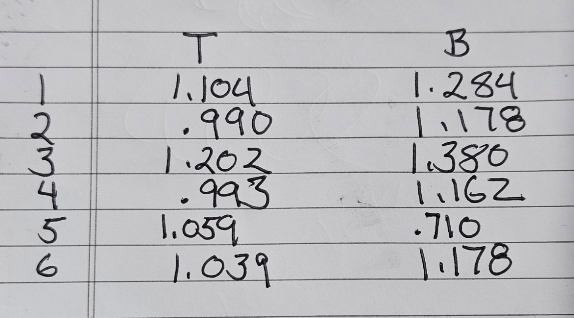 T B
1 1.104 1.284
2 .990 1.178
3 1.202 1.380
4 .993 1.162
5 1.059 .710
6 1.039 1.178